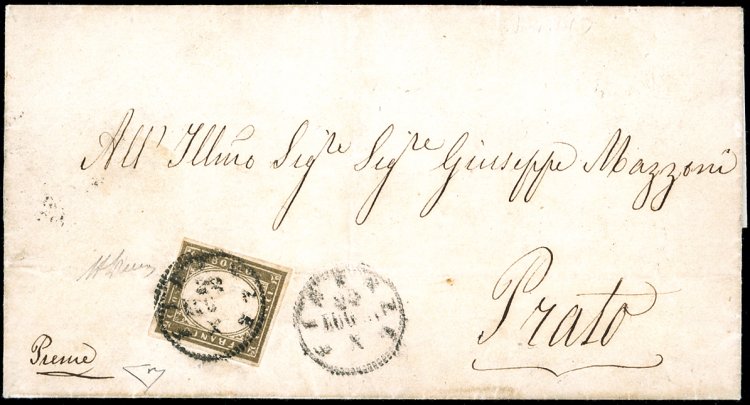 All' Illmo Sigre Sigre Giuseppe Mazzoni
Prato
Preme
FIRENZE
LUG
X
FRANCO